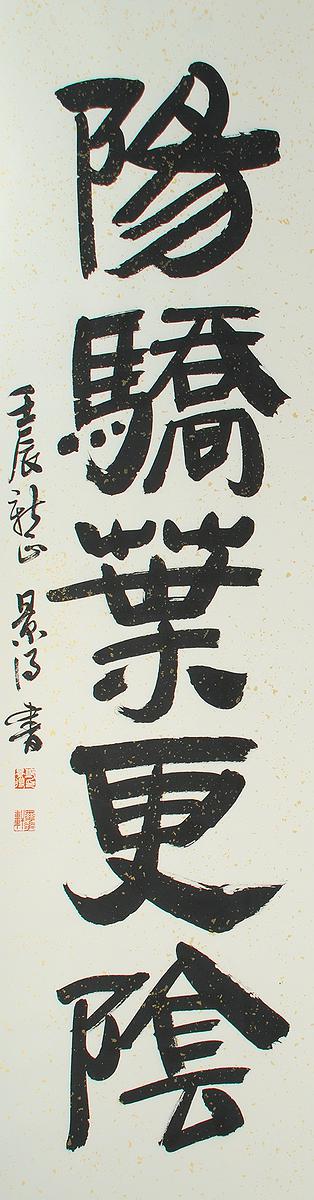 陽驕葉更陰
壬辰新正 景得書